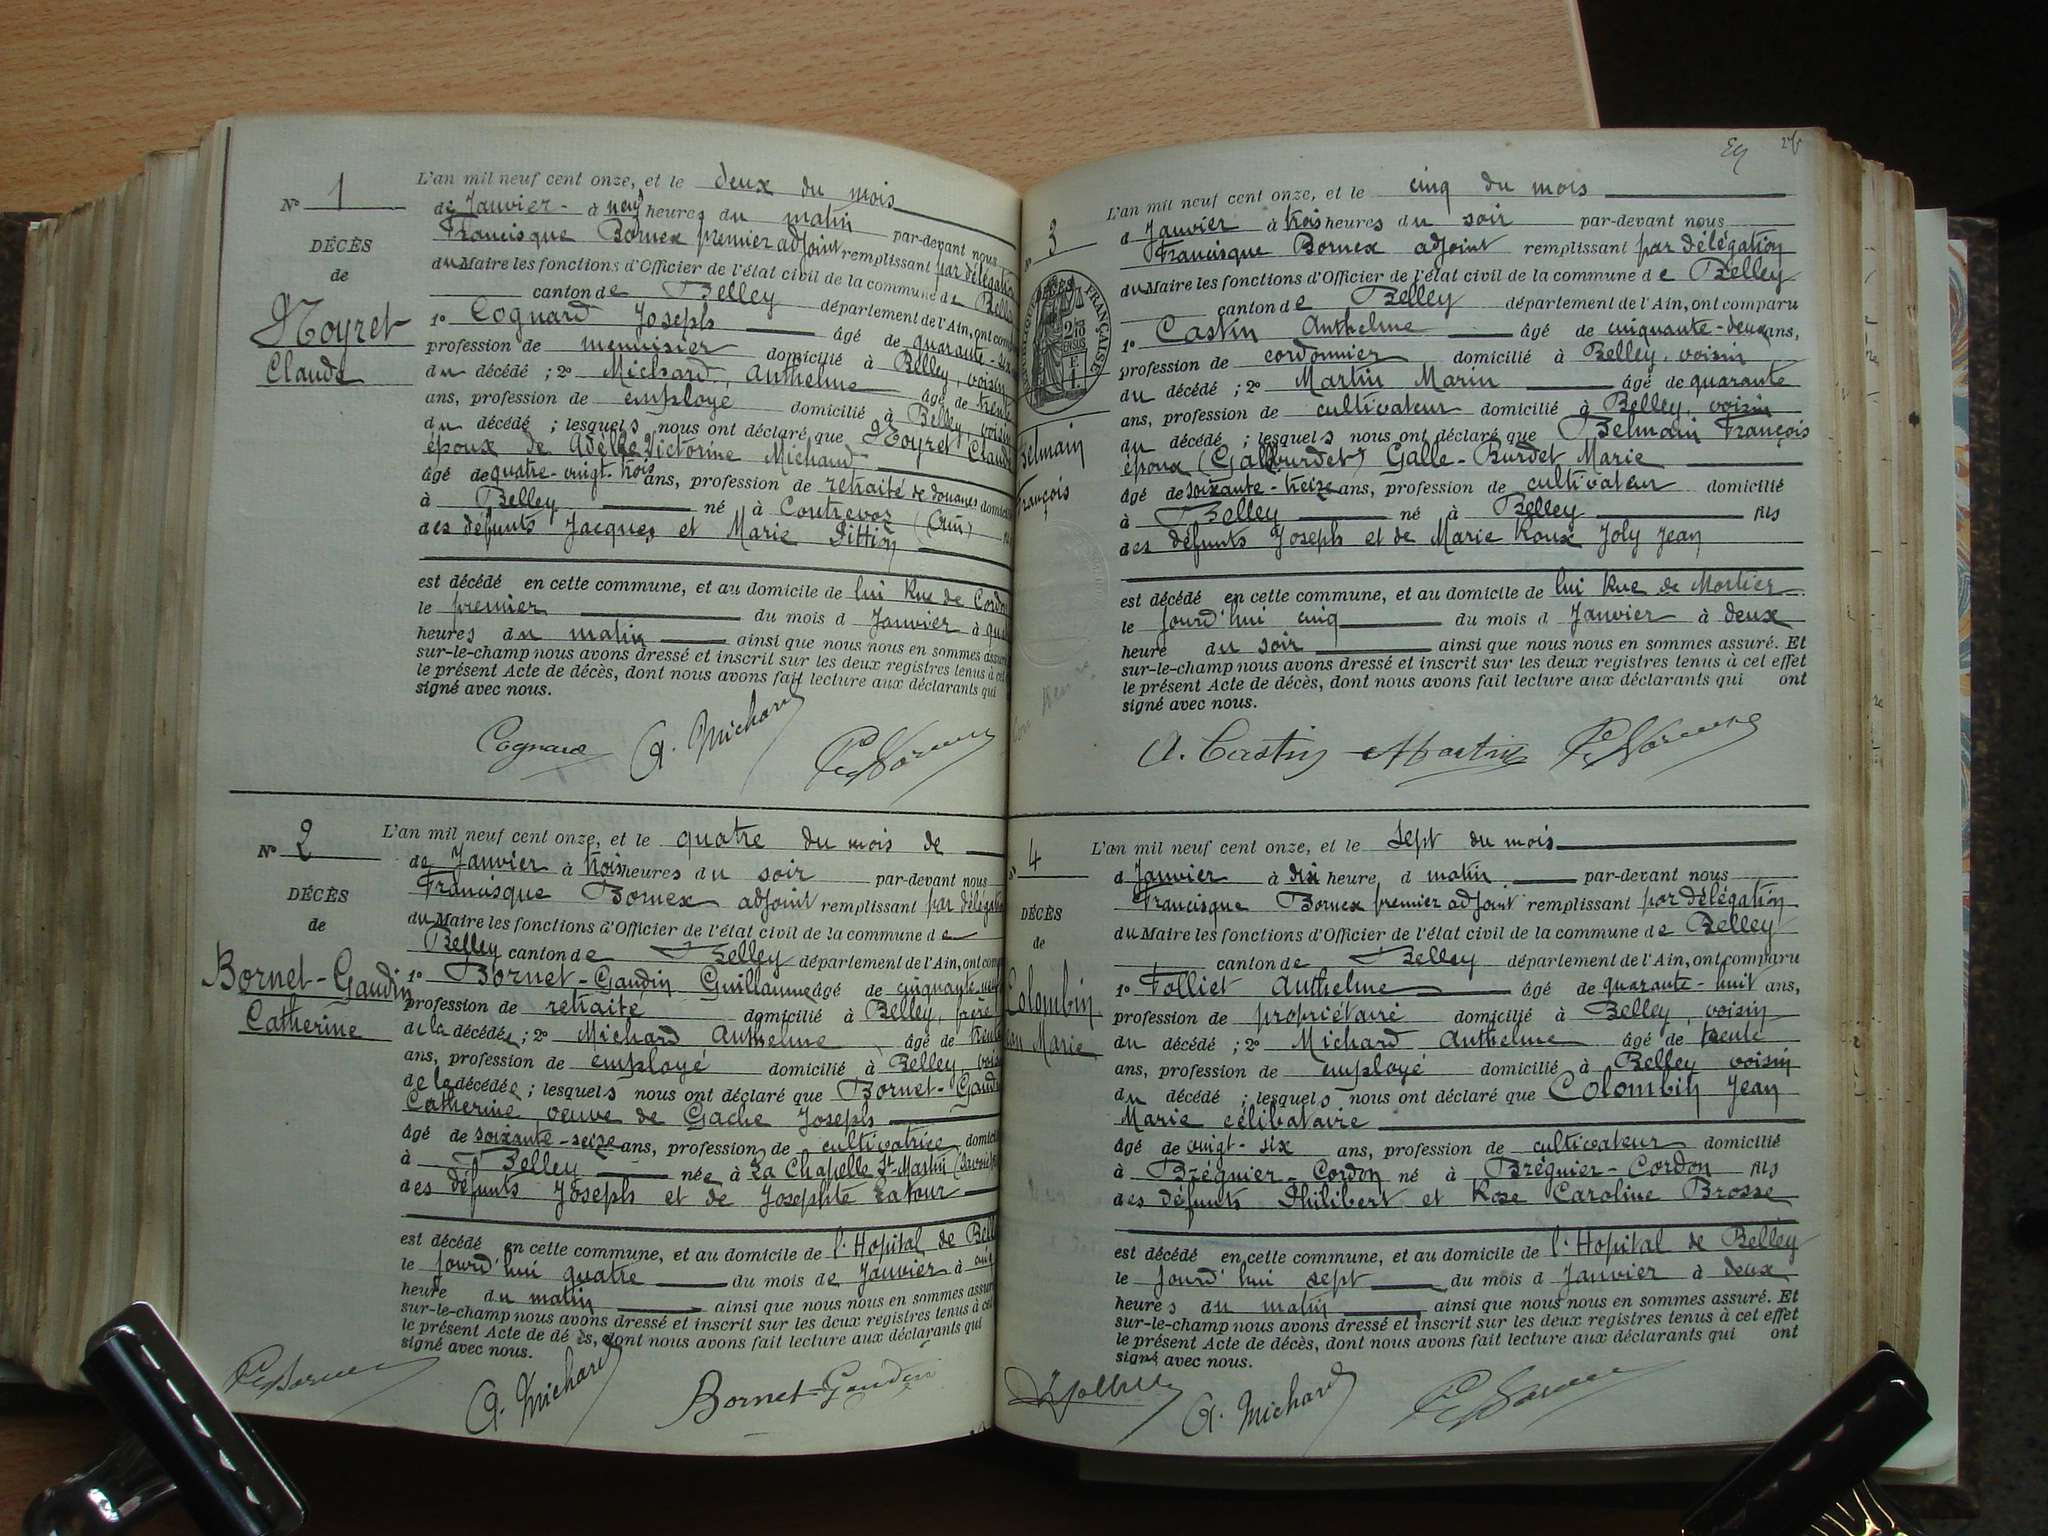 N° 1
DÉCÈS
de
Noyret
Claude
L'an mil neuf cent onze, et le deux du mois
de Janvier à neuf heures du matin par-devant nous
Francisque Bornex premier adjoint remplissant par délégation
du Maire les fonctions d'Officier de l'état civil de la commune de Belley
canton de Belley département de l'Ain, ont comp
1° Cognard Joseph âgé de quarante-six
profession de menuisier domicilié à Belley, voisin
du décédé ; 2° Michard, Anthelme âgé de trente
ans, profession de employé domicilié à Belley, voisin
du décédé ; lesquels nous ont déclaré que Noyret Claude
époux de Adèle Victorine Michaud
âgé de quatre-vingt-trois ans, profession de retraité de douanes domicil
à Belley né à Contrevoz (Ain)
des défunts Jacques et Marie Pittin
est décédé en cette commune, et au domicile de lui Rue de Cordon
le premier du mois d Janvier à
heures du matin ainsi que nous nous en sommes assuré
sur-le-champ nous avons dressé et inscrit sur les deux registres tenus à cet
le présent Acte de décès, dont nous avons fait lecture aux déclarants qui
signé avec nous.
Cognard A. Michard Bornex
N° 2
DÉCÈS
de
Bornet-Gaudin
Catherine
L'an mil neuf cent onze, et le quatre du mois de
de Janvier à trois heures du soir par-devant nous
Francisque Bornex adjoint remplissant par délégation
du Maire les fonctions d'Officier de l'état civil de la commune de
Belley canton de Belley département de l'Ain, ont comp
1° Bornet-Gaudin Guillaume âgé de cinquante-neuf
profession de retraité domicilié à Belley, frère
de la décédée ; 2° Michard Anthelme âgé de trente
ans, profession de employé domicilié à Belley, vois
de la décédée ; lesquels nous ont déclaré que Bornet-Gaudin
Catherine veuve de Gache Joseph
âgé de soixante-seize ans, profession de cultivatrice domicil
à Belley née à La Chapelle St Martin (Savoie)
des défunts Joseph et de Josephte Latour
est décédé en cette commune, et au domicile de l'Hopital de Bell
le jourd'hui quatre du mois de Janvier à cinq
heure du matin ainsi que nous nous en sommes assuré
sur-le-champ nous avons dressé et inscrit sur les deux registres tenus à cet
le présent Acte de dé ès, dont nous avons fait lecture aux déclarants qui
signé avec nous.
Bornex A. Michard Bornet-Gaudin
N° 3
RÉPUBLIQUE FRANÇAISE
Belmain
François
L'an mil neuf cent onze, et le cinq du mois
d Janvier à trois heures du soir par-devant nous
Francisque Bornex adjoint remplissant par délégation
du Maire les fonctions d'Officier de l'état civil de la commune de Belley
canton de Belley département de l'Ain, ont comparu
1° Castin Anthelme âgé de cinquante-deux ans,
profession de cordonnier domicilié à Belley, voisin
du décédé ; 2° Martin Marin âgé de quarante
ans, profession de cultivateur domicilié à Belley, voisin
du décédé ; lesquels nous ont déclaré que Belmain François
époux (Galburdet) Galle-Burdet Marie
âgé de soixante-treize ans, profession de cultivateur domicilié
à Belley né à Belley fils
des défunts Joseph et de Marie Roux Joly Jean
est décédé en cette commune, et au domicile de lui Rue de Mortier
le jourd'hui cinq du mois d Janvier à deux
heure du soir ainsi que nous nous en sommes assuré. Et
sur-le-champ nous avons dressé et inscrit sur les deux registres tenus à cet effet
le présent Acte de décès, dont nous avons fait lecture aux déclarants qui ont
signé avec nous.
A. Castin Martin Bornex
N° 4
DÉCÈS
de
Colombin
Jean Marie
L'an mil neuf cent onze, et le sept du mois
d Janvier à dix heure d matin par-devant nous
Francisque Bornex premier adjoint remplissant par délégation
du Maire les fonctions d'Officier de l'état civil de la commune de Belley
canton de Belley département de l'Ain, ont comparu
1° Folliet Anthelme âgé de quarante-huit ans,
profession de propriétaire domicilié à Belley, voisin
du décédé ; 2° Michard Anthelme âgé de trente
ans, profession de employé domicilié à Belley voisin
du décédé ; lesquels nous ont déclaré que Colombin Jean
Marie célibataire
âgé de vingt-six ans, profession de cultivateur domicilié
à Brégnier-Cordon né à Brégnier-Cordon fils
des défunts Philibert et Rose Caroline Brosse
est décédé en cette commune, et au domicile de l'Hopital de Belley
le jourd'hui sept du mois d Janvier à deux
heures du matin ainsi que nous nous en sommes assuré. Et
sur-le-champ nous avons dressé et inscrit sur les deux registres tenus à cet effet
le présent Acte de décès, dont nous avons fait lecture aux déclarants qui ont
signé avec nous.
Folliet A. Michard Bornex